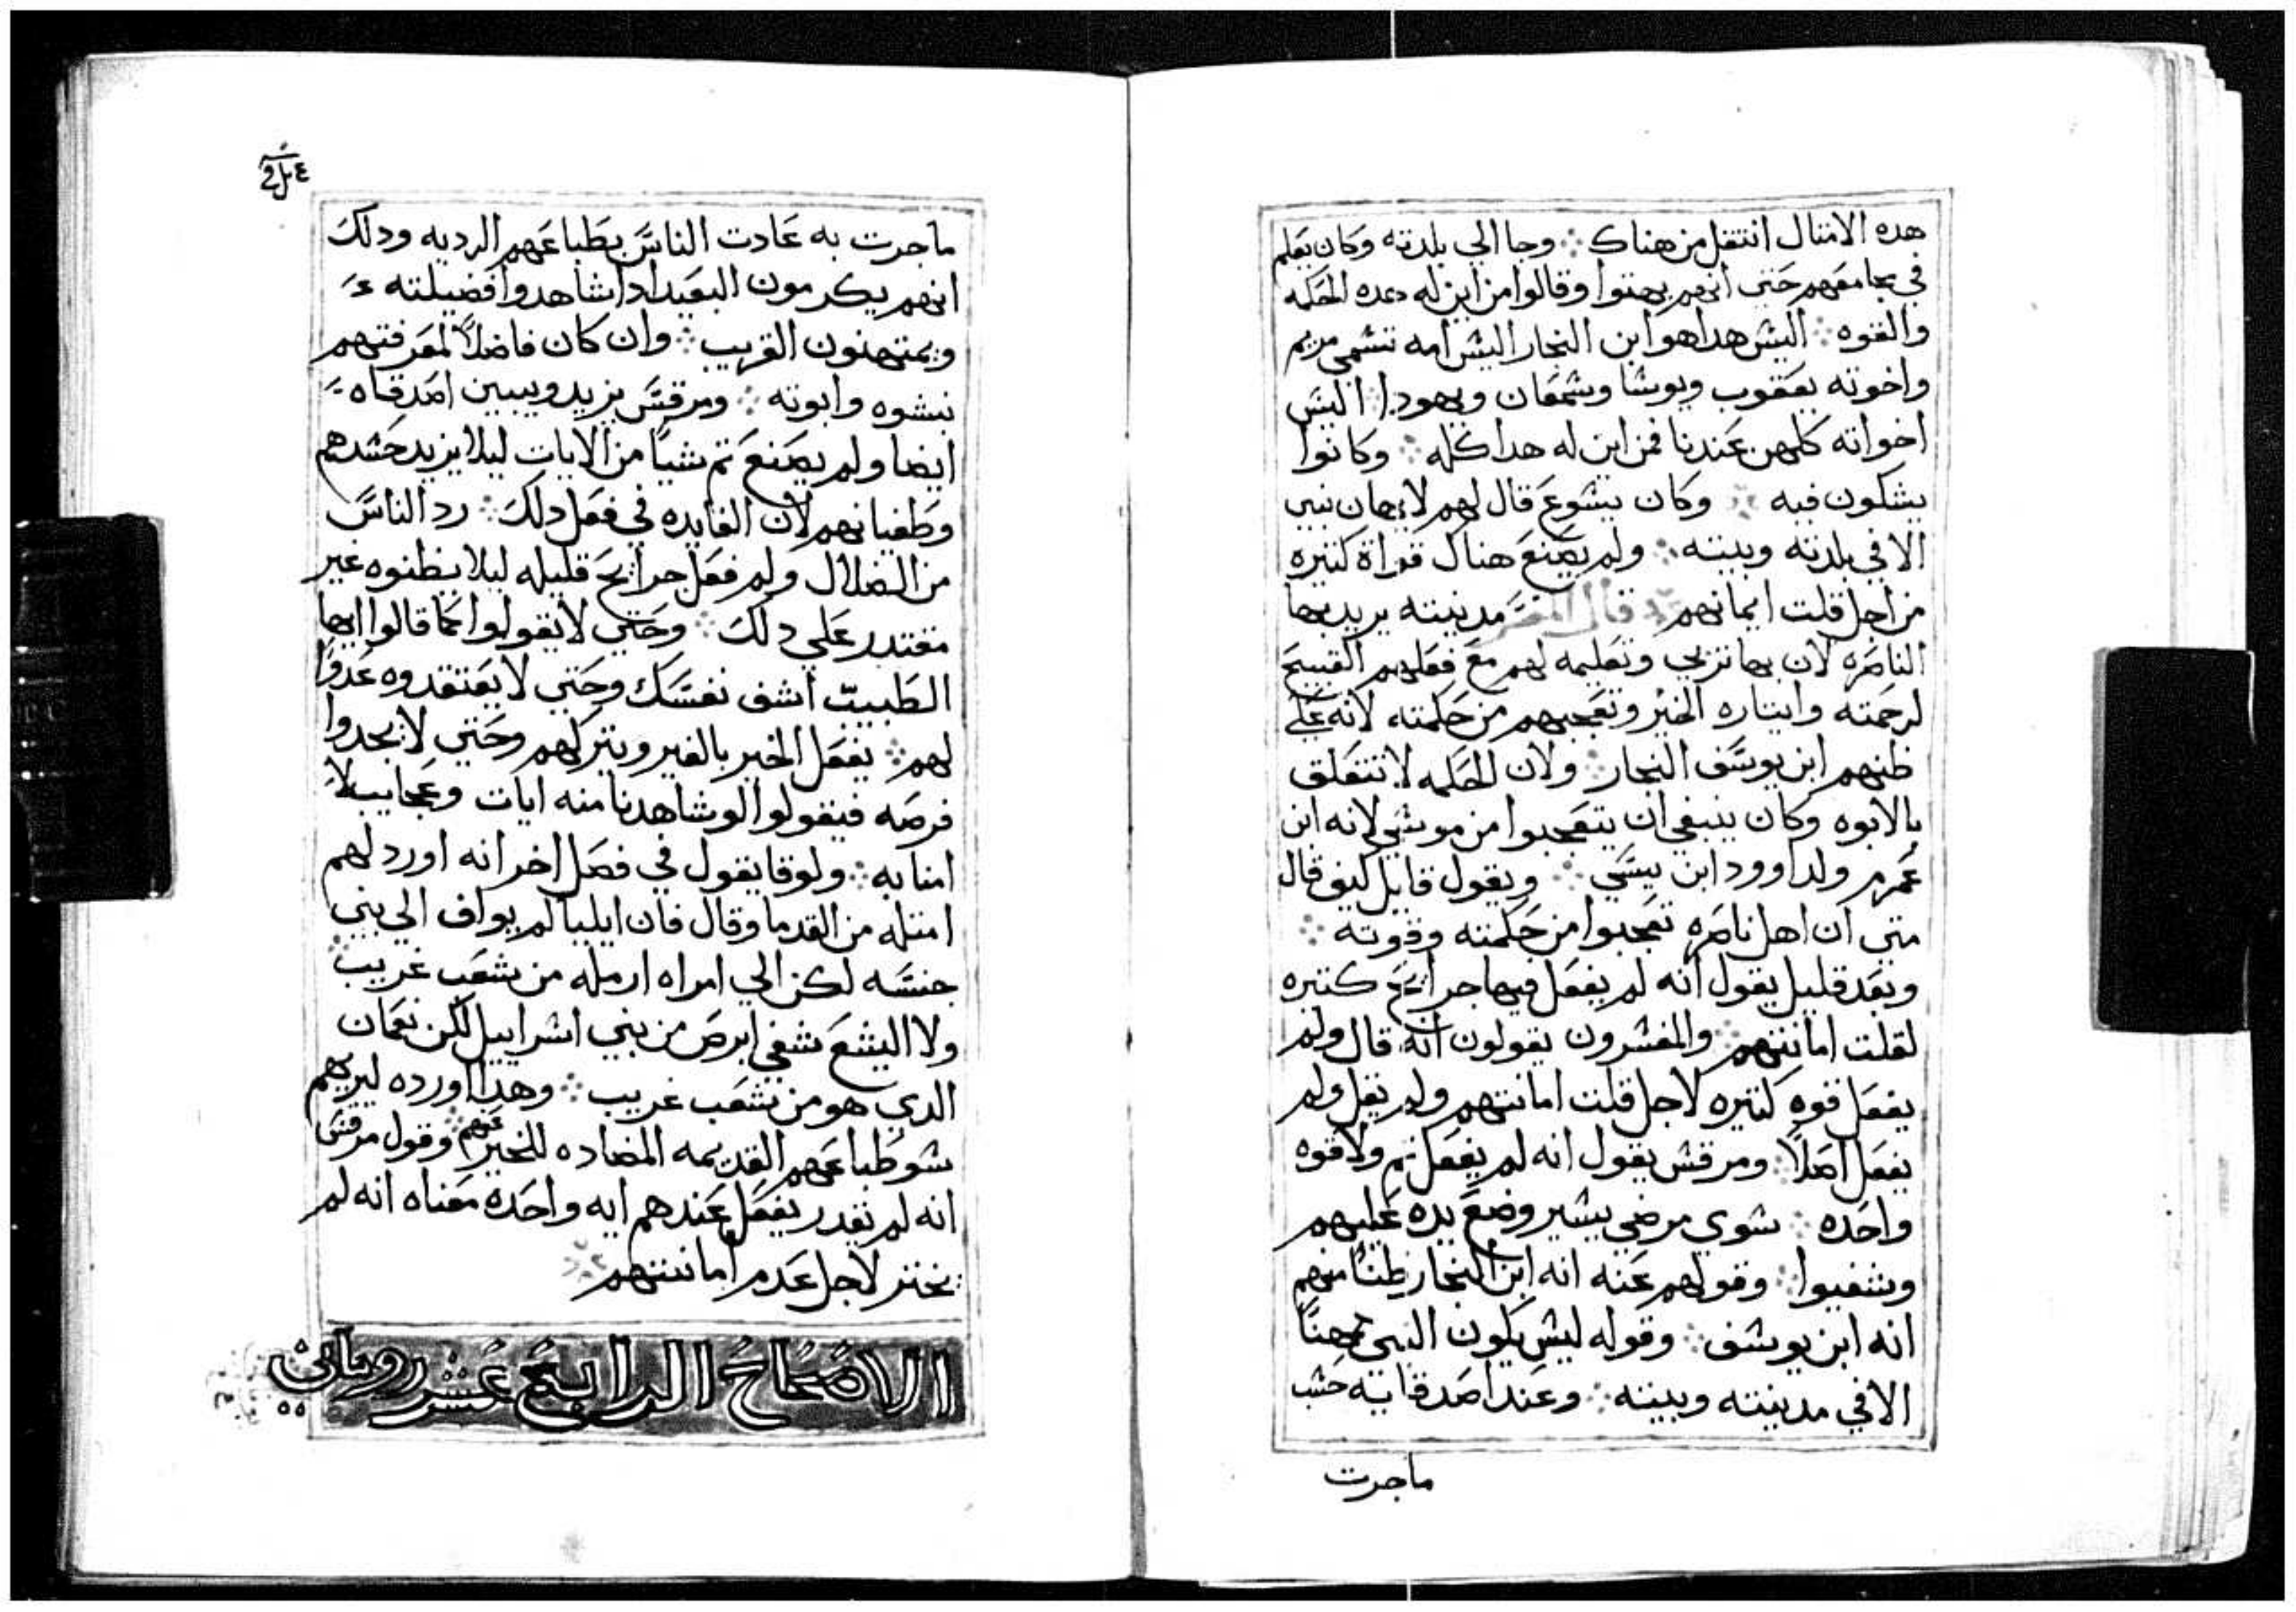 هده الامتال انتقل من هناك ܀ وجا الي بلدته وكان يعلم
في مجامعهم حتي انهم بهتوا وقالوا من اين له هده الحكمه
والقوه ܀ اليش هدا هو ابن النجار اليش امه تتشمي مريم
واخوته يعقوب ويوشا وشمعان ويهودا اليش
اخواته كلهن عندنا فمن اين له هدا كله ܀ وكانوا
يشكون فيه ܀ وكان يشوع قال لهم لا يهان نبي
الا في بلدته وبيته ܀ ولم يصنع هناك قواة كتيره
من اجل قلت ايمانهم ܀ قال المفسر مدينته يريد بها
الناصره لان بها تربي وتعليمه لهم مع فعلهم القبيح
لرحمته وايتاره الخير وتعجبهم من حكمته لانه علي
ظنهم ابن يوسف النجار ܀ ولان الحكمه لا تتعلق
بالابوه وكان ينبغي ان يتعجبوا من موشي لانه ابن
عمرم ولداوود ابن يسي ܀ ويقول قايل كيف قال
متي ان اهل ناصره تعجبوا من حكمته وقوته ܀
وبعد قليل يقول انه لم يفعل فيها جرايح كتيره
لقلت امانتهم ܀ والمفشرون يقولون انه قال ولم
يفعل قوه كتيره لاجل قلت امانتهم ولم يقل ولم
يفعل اصلاً ܀ ومرقش يقول انه لم يفعل تم ولا قوه
واحده ܀ شوي مرضي يشير وضع يده عليهم
وشفيوا ܀ وقولهم عنه انه ابن النجار ظناً منهم
انه ابن يوشف ܀ وقوله ليش يكون النبي مهناً
الا في مدينته وبيته ܀ وعند اصدقايه حشب
ماجرت
ماجرت به عادت الناس بطباعهم الرديه ودلك
انهم يكرمون البعيد ادا شاهدوا فضيلته
ويمتهنون القريب ܀ وان كان فاضلاً لمعرفتهم
نبشوه وابوته ܀ ومرقس يزيد ويبين اصدقاه
ايضا ولم يصنع تم شياً من الايات ليلا يزيد حشدهم
وطغيانهم لان الفايده في فعل دلك ܀ رد الناس
من الضلال ولم فعل جرايح قليله ليلا يظنوه غير
مقتدر علي دلك ܀ وحتي لا يقولوا كما قالوا ايها
الطبيب اشف نفسك وحتي لا يعتقدوه عدواً
لهم ܀ يفعل الخير بالغير ويتركهم وحتي لا يجدوا
فرصه فيقولوا لو شاهدنا منه ايات وعجايب لا
امنا به ܀ ولوقا يقول في فصل اخر انه اورد لهم
امتله من القدما وقال فان ايليا لم يواف الي بني
جنسه لكن الي امراه ارمله من شعب غريب ܀
ولا اليشع شفي ابرص من بني اشراييل لكن نعمان
الدي هو من شعب غريب ܀ وهدا اورده ليريهم
شو طباعهم القديمه المضاده للخير عنهم ܀ وقول مرقس
انه لم يقدر يفعل عندهم ايه واحدة معناه انه لم
يختر لاجل عدم امانتهم ܀
الاصحاح الرابع عشر روماني